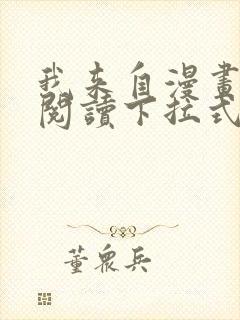 我来自漫畫
閱讀下拉式
董眾兵